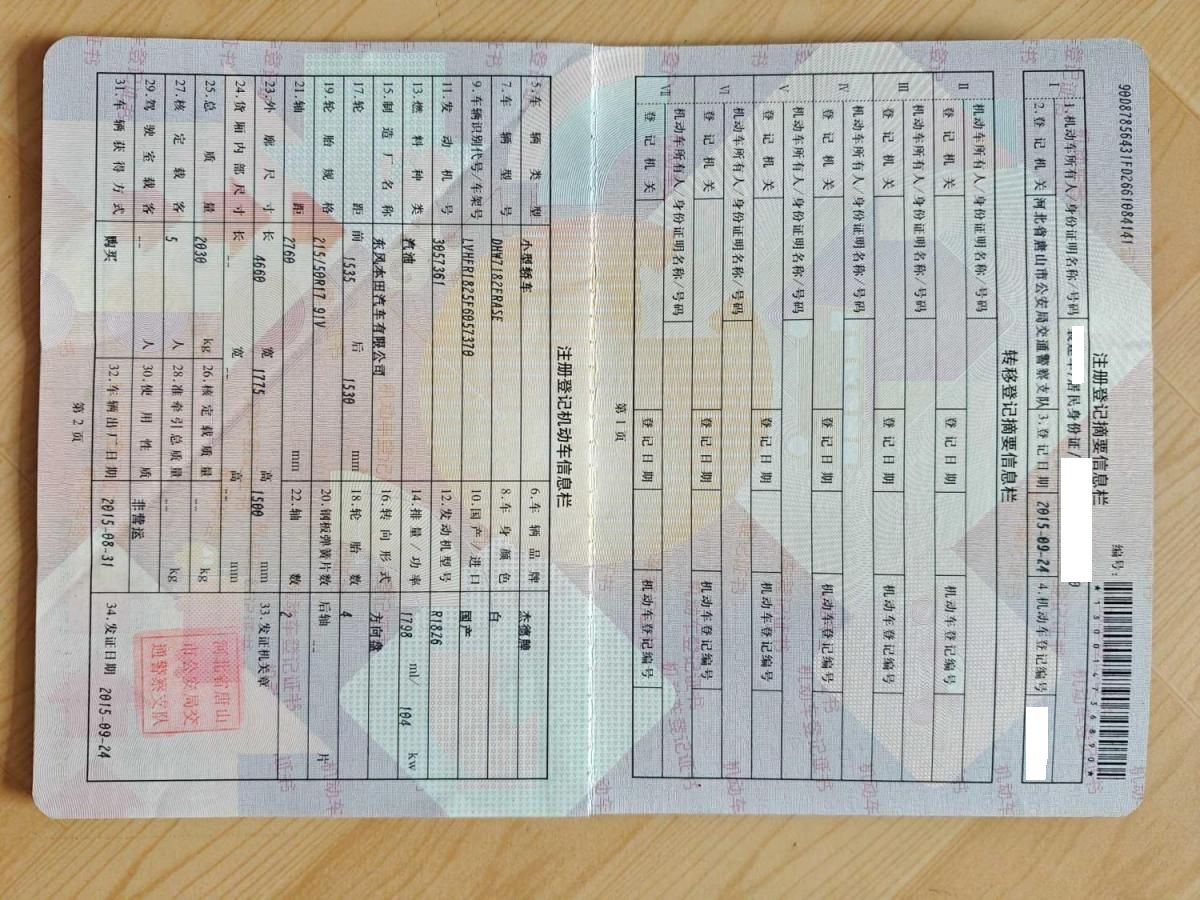 90D87856431FD2661084141
编号:
*130014756890*
注册登记摘要信息栏
I
1.机动车所有人/身份证明名称/号码 居民身份证/
2.登记机关 河北省唐山市公安局交通警察支队 3.登记日期 2015-09-24 4.机动车登记编号
转移登记摘要信息栏
II
机动车所有人/身份证明名称/号码
登记机关 登记日期 机动车登记编号
III
机动车所有人/身份证明名称/号码
登记机关 登记日期 机动车登记编号
IV
机动车所有人/身份证明名称/号码
登记机关 登记日期 机动车登记编号
V
机动车所有人/身份证明名称/号码
登记机关 登记日期 机动车登记编号
VI
机动车所有人/身份证明名称/号码
登记机关 登记日期 机动车登记编号
VII
机动车所有人/身份证明名称/号码
登记机关 登记日期 机动车登记编号
第1页
注册登记机动车信息栏
5.车辆类型 小型轿车 6.车辆品牌 杰德牌
7.车辆型号 DHW7182FRASE 8.车身颜色 白
9.车辆识别代号/车架号 LVHFR1825F6057370 10.国产/进口 国产
11.发动机号 3057361 12.发动机型号 R18Z6
13.燃料种类 汽油 14.排量/功率 1798 ml/ 104 kw
15.制造厂名称 东风本田汽车有限公司 16.转向形式 方向盘
17.轮距 前 1535 后 1530 mm 18.轮胎数 4
19.轮胎规格 215/50R17 91V 20.钢板弹簧片数 后轴 -- 片
21.轴距 2760 mm 22.轴数 2
23.外廓尺寸 长 4660 宽 1775 高 1500 mm 33.发证机关章
24.货厢内部尺寸 长 -- 宽 -- 高 -- mm
25.总质量 2030 kg 26.核定载质量 -- kg
27.核定载客 5 人 28.准牵引总质量 -- kg
29.驾驶室载客 -- 人 30.使用性质 非营运
31.车辆获得方式 购买 32.车辆出厂日期 2015-08-31 34.发证日期 2015-09-24
河北省唐山
市公安局交
通警察支队
第2页